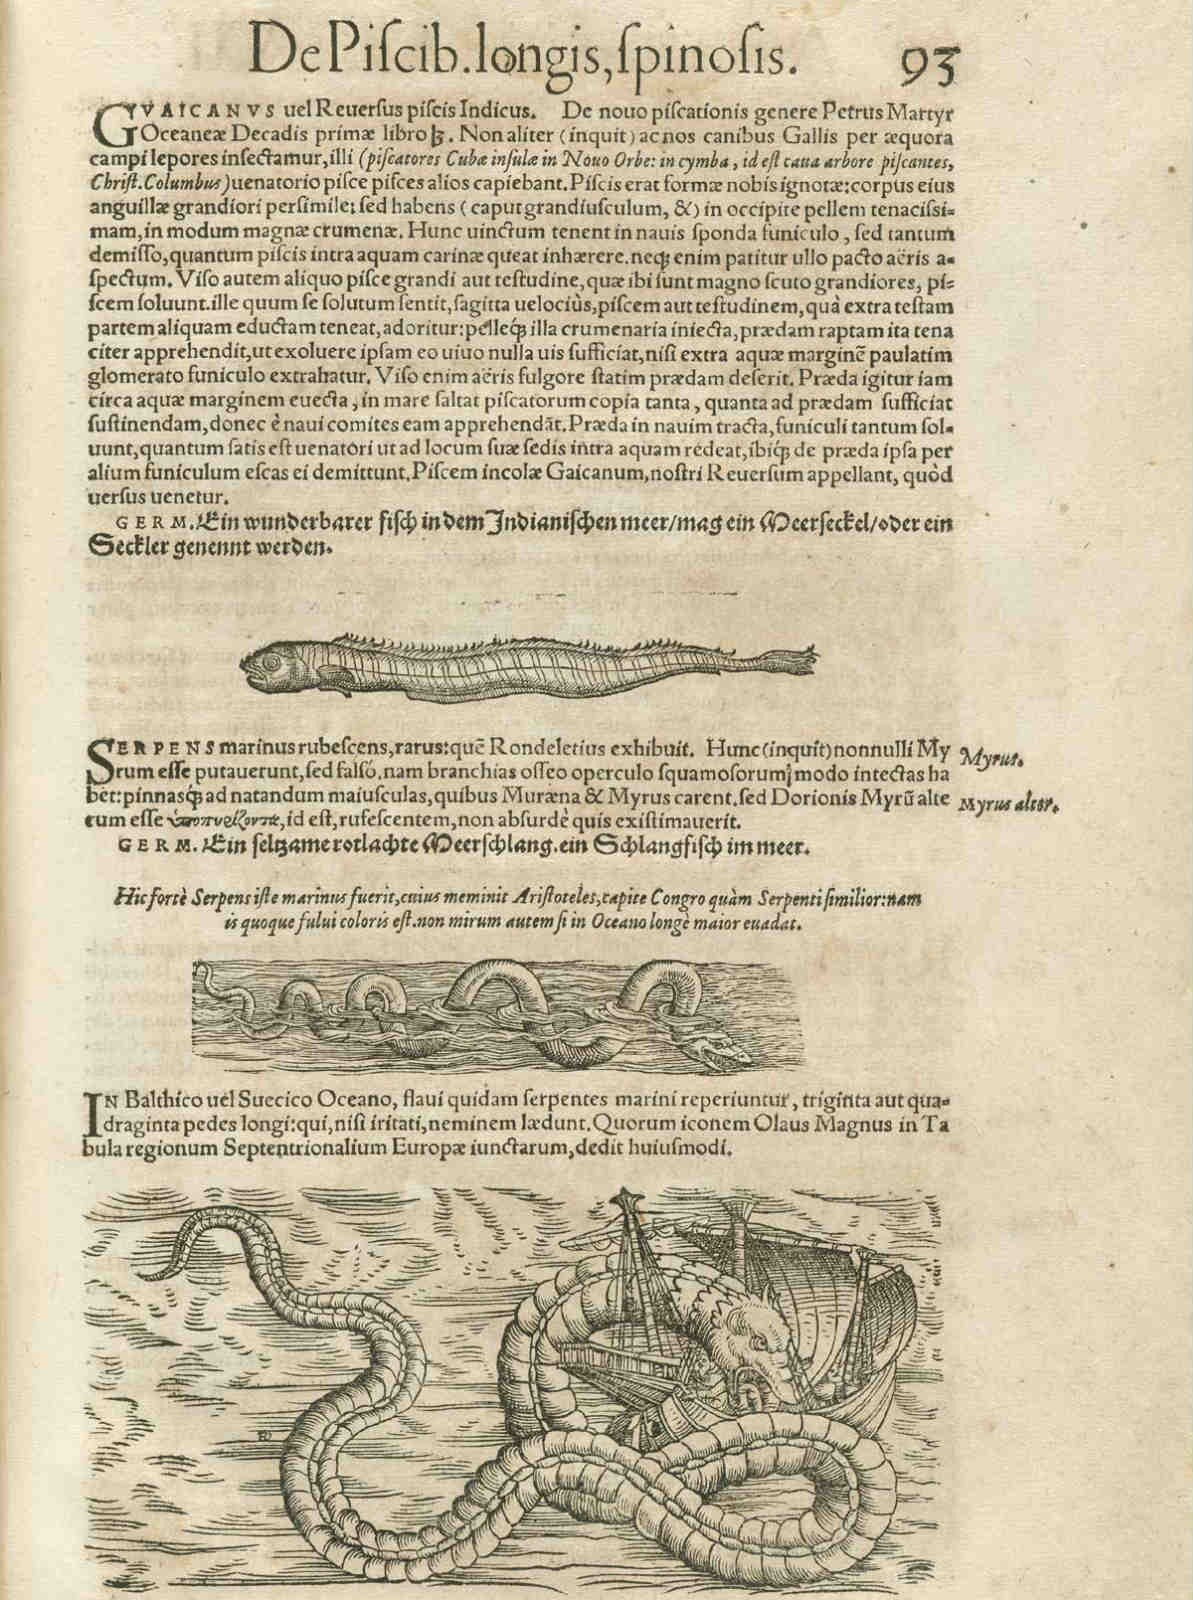 De Piſcib. longis, ſpinoſis. 93
GVAICANVS uel Reuerſus piſcis Indicus. De nouo piſcationis genere Petrus Martyr
Oceaneæ Decadis primæ libro ꝫ. Non aliter (inquit) ac nos canibus Gallis per æquora
campi lepores inſectamur, illi (piſcatores Cubæ inſulæ in Nouo Orbe: in cymba, id eſt caua arbore piſcantes,
Chriſt. Columbus) uenatorio piſce piſces alios capiebant. Piſcis erat formæ nobis ignotæ: corpus eius
anguillæ grandiori perſimile: ſed habens (caput grandiuſculum, &) in occipite pellem tenaciſsi=
mam, in modum magnæ crumenæ. Hunc uinctum tenent in nauis ſponda funiculo, ſed tantum
demiſſo, quantum piſcis intra aquam carinæ queat inhærere. neq; enim patitur ullo pacto aëris a=
ſpectum. Viſo autem aliquo piſce grandi aut teſtudine, quæ ibi ſunt magno ſcuto grandiores, pi=
ſcem ſoluunt. ille quum ſe ſolutum ſentit, ſagitta uelociùs, piſcem aut teſtudinem, quà extra teſtam
partem aliquam eductam teneat, adoritur: pelleq́; illa crumenaria iniecta, prædam raptam ita tena
citer apprehendit, ut exoluere ipſam eo uiuo nulla uis ſufficiat, niſi extra aquæ marginẽ paulatim
glomerato funiculo extrahatur. Viſo enim aëris fulgore ſtatim prædam deſerit. Præda igitur iam
circa aquæ marginem euecta, in mare ſaltat piſcatorum copia tanta, quanta ad prædam ſufficiat
ſuſtinendam, donec è naui comites eam apprehendãt. Præda in nauim tracta, funiculi tantum ſol=
uunt, quantum ſatis eſt uenatori ut ad locum ſuæ ſedis intra aquam redeat, ibiq́; de præda ipſa per
alium funiculum eſcas ei demittunt. Piſcem incolæ Gaicanum, noſtri Reuerſum appellant, quòd
uerſus uenetur.
GERM. Ein wunderbarer fiſch in dem Indianiſchen meer/mag ein Meerſeckel/oder ein
Seckler genennt werden.
SERPENS marinus rubeſcens, rarus: quẽ Rondeletius exhibuit. Hunc (inquit) nonnulli My
rum eſſe putauerunt, ſed falſò. nam branchias oſſeo operculo ſquamoſorum modo intectas ha
bet: pinnasq́; ad natandum maiuſculas, quibus Muræna & Myrus carent. ſed Dorionis Myrũ alte
rum eſſe ὑποπυῤῥίζοντα, id eſt, rufeſcentem, non abſurdè quis exiſtimauerit.
Myrus.
Myrus alter.
GERM. Ein ſeltzame rotlachte Meerſchlang. ein Schlangfiſch im meer.
Hic fortè Serpens iſte marinus fuerit, cuius meminit Ariſtoteles, capite Congro quàm Serpenti ſimilior: nam
is quoque fului coloris eſt. non mirum autem ſi in Oceano longè maior euadat.
IN Balthico uel Suecico Oceano, flaui quidam ſerpentes marini reperiuntur, triginta aut qua=
draginta pedes longi: qui, niſi iritati, neminem lædunt. Quorum iconem Olaus Magnus in Ta
bula regionum Septentrionalium Europæ iunctarum, dedit huiuſmodi.